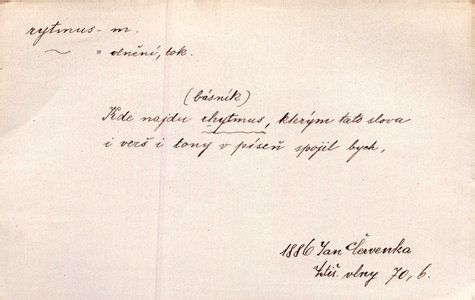 rytmus - m.
~ = vlnění, tok.
(básník)
Kde najdu rhytmus, kterým tato slova
i verš i tony v píseň spojil bych,
1886 Jan Červenka
Utiš. vlny 70, 6.